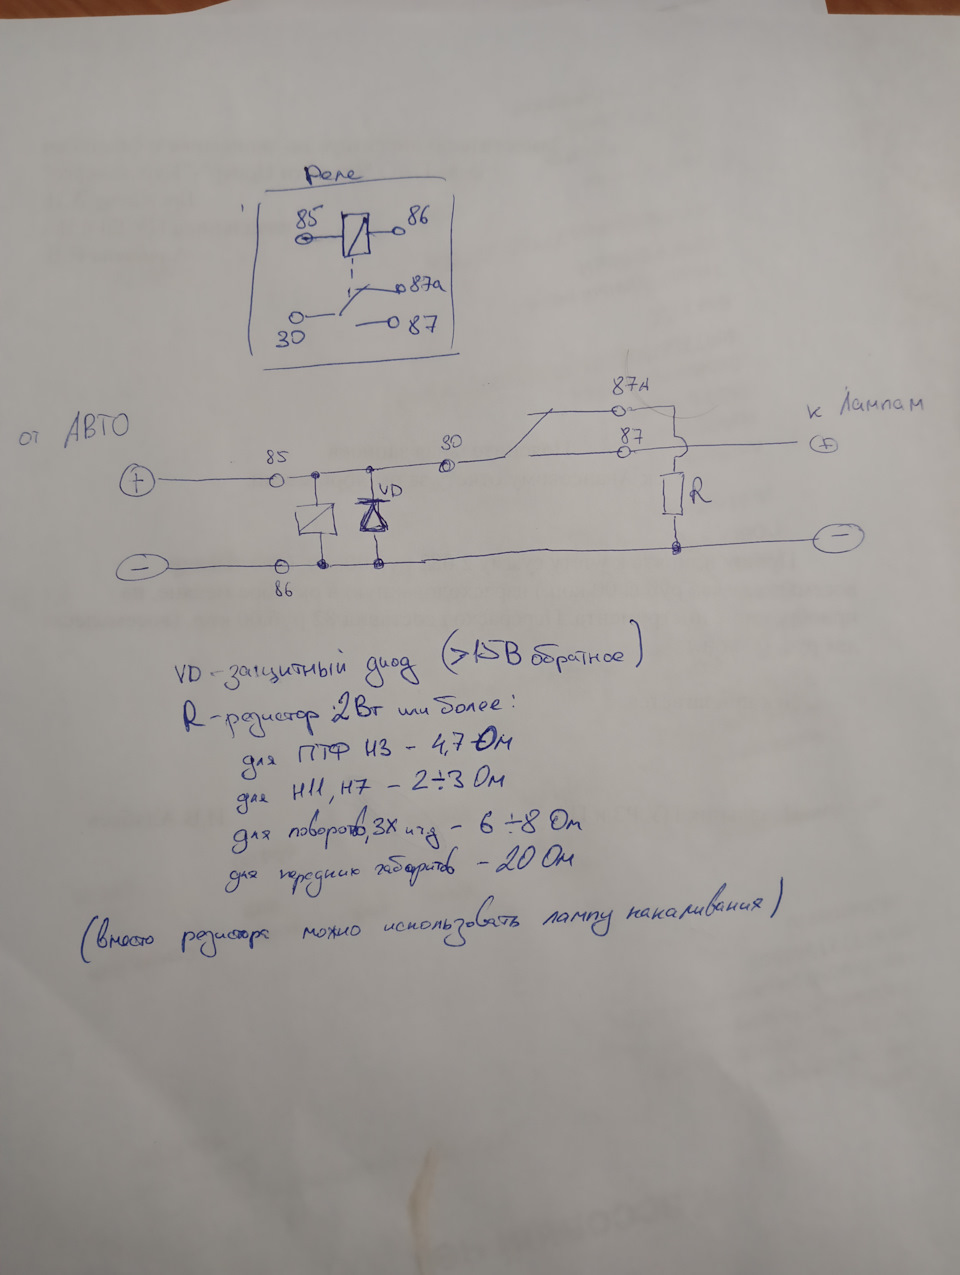 Реле
85 86
87а
30 87
от АВТО
к Лампам
87А
85 30 87
+ +
VD
R
- -
86
VD - защитный диод (>15В обратное)
R - резистор 2Вт или более:
для ПТФ Н3 - 4,7 Ом
для Н11, Н7 - 2÷3 Ом
для поворотов, ЗХ итд - 6÷8 Ом
для передних габаритов - 20 Ом
(вместо резистора можно использовать лампу накаливания)